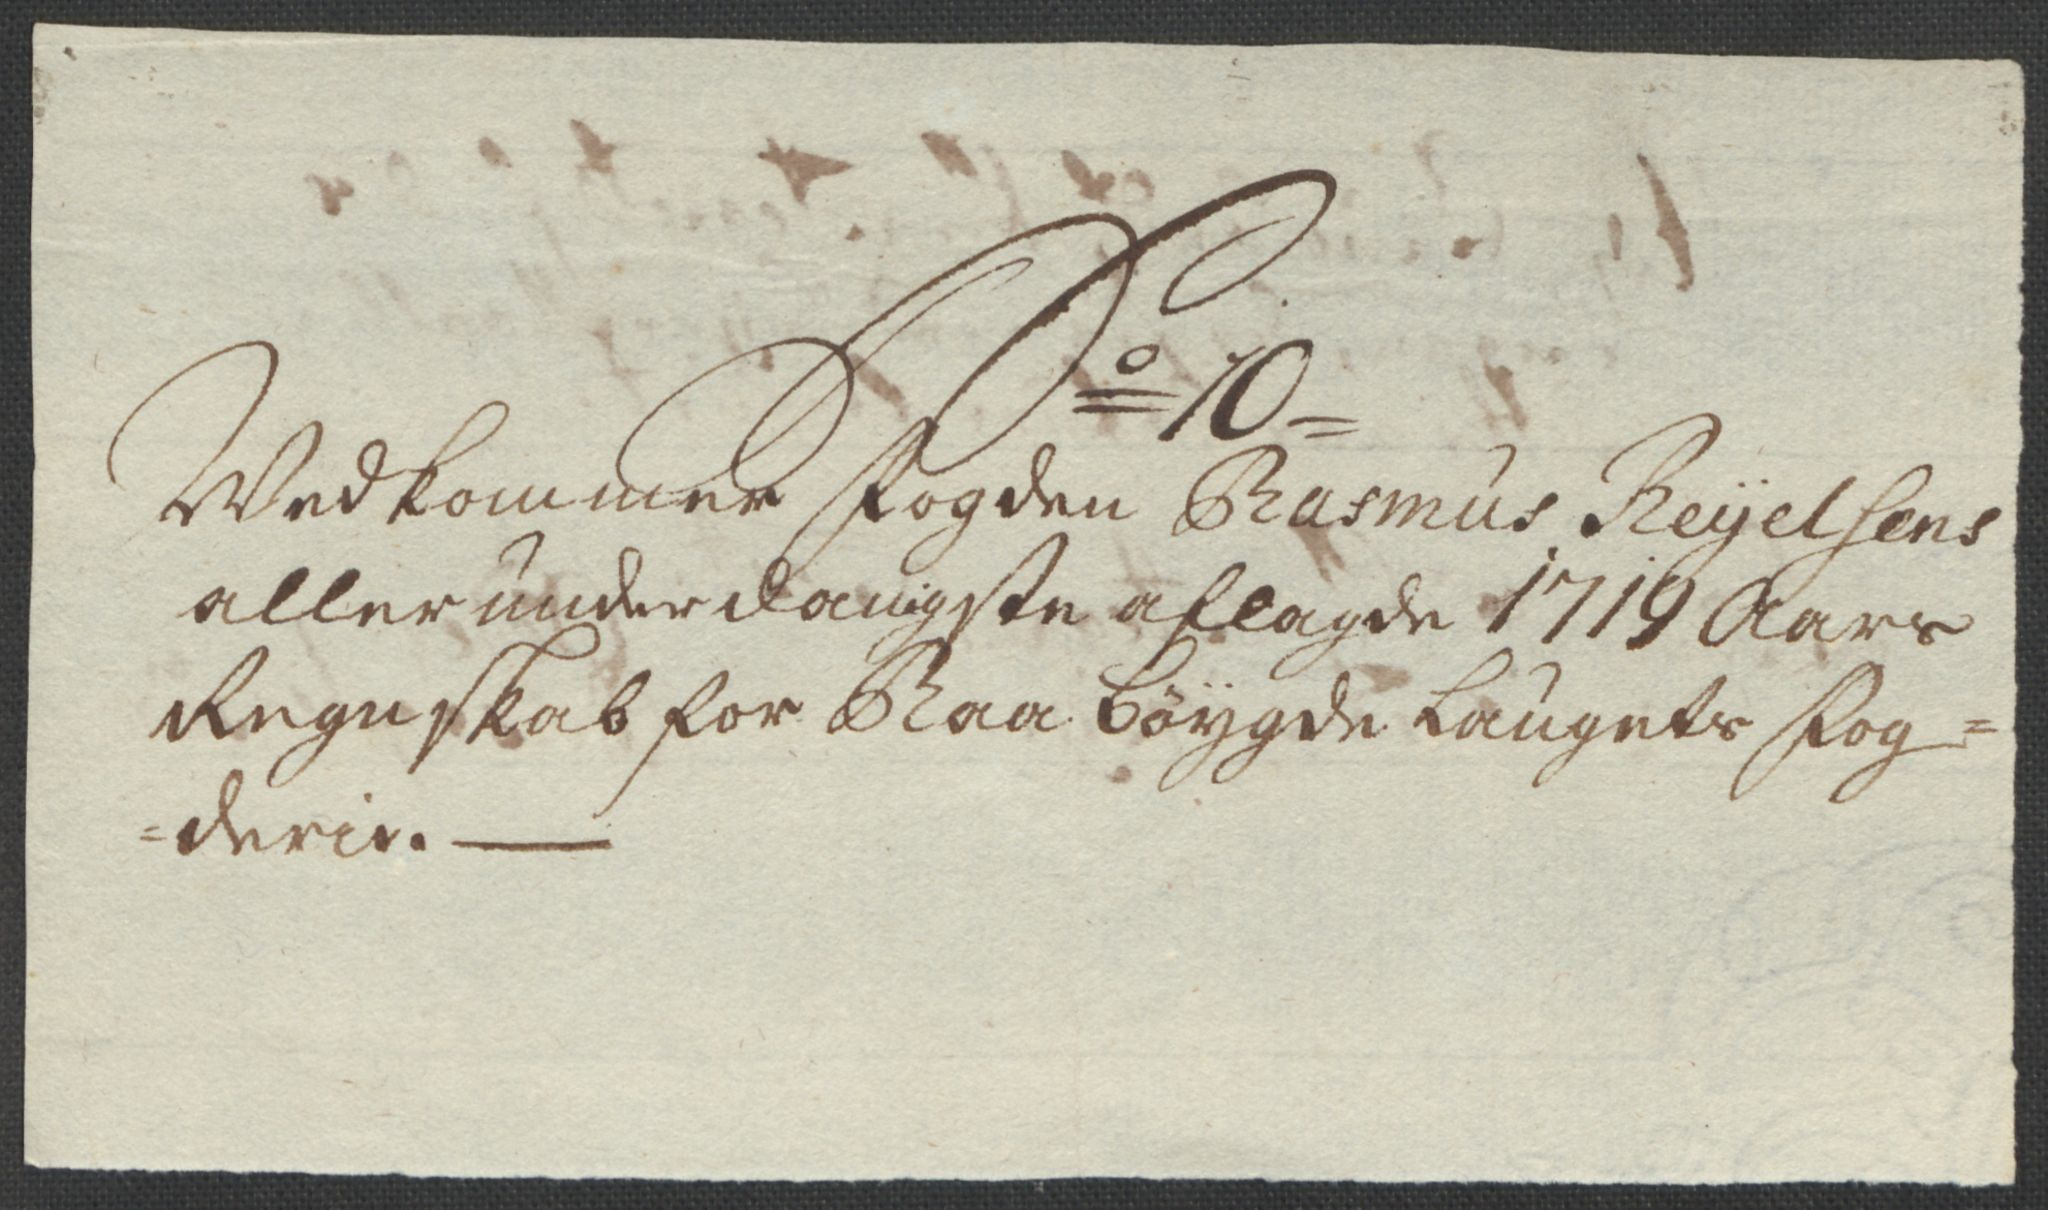 No 10=
Vedkommer Fogden Rasmus Reyelsens
allerunderdanigste aflagde 1719 Aars
Regnskab for Raabøygde Laugets Fog=
=derie. —